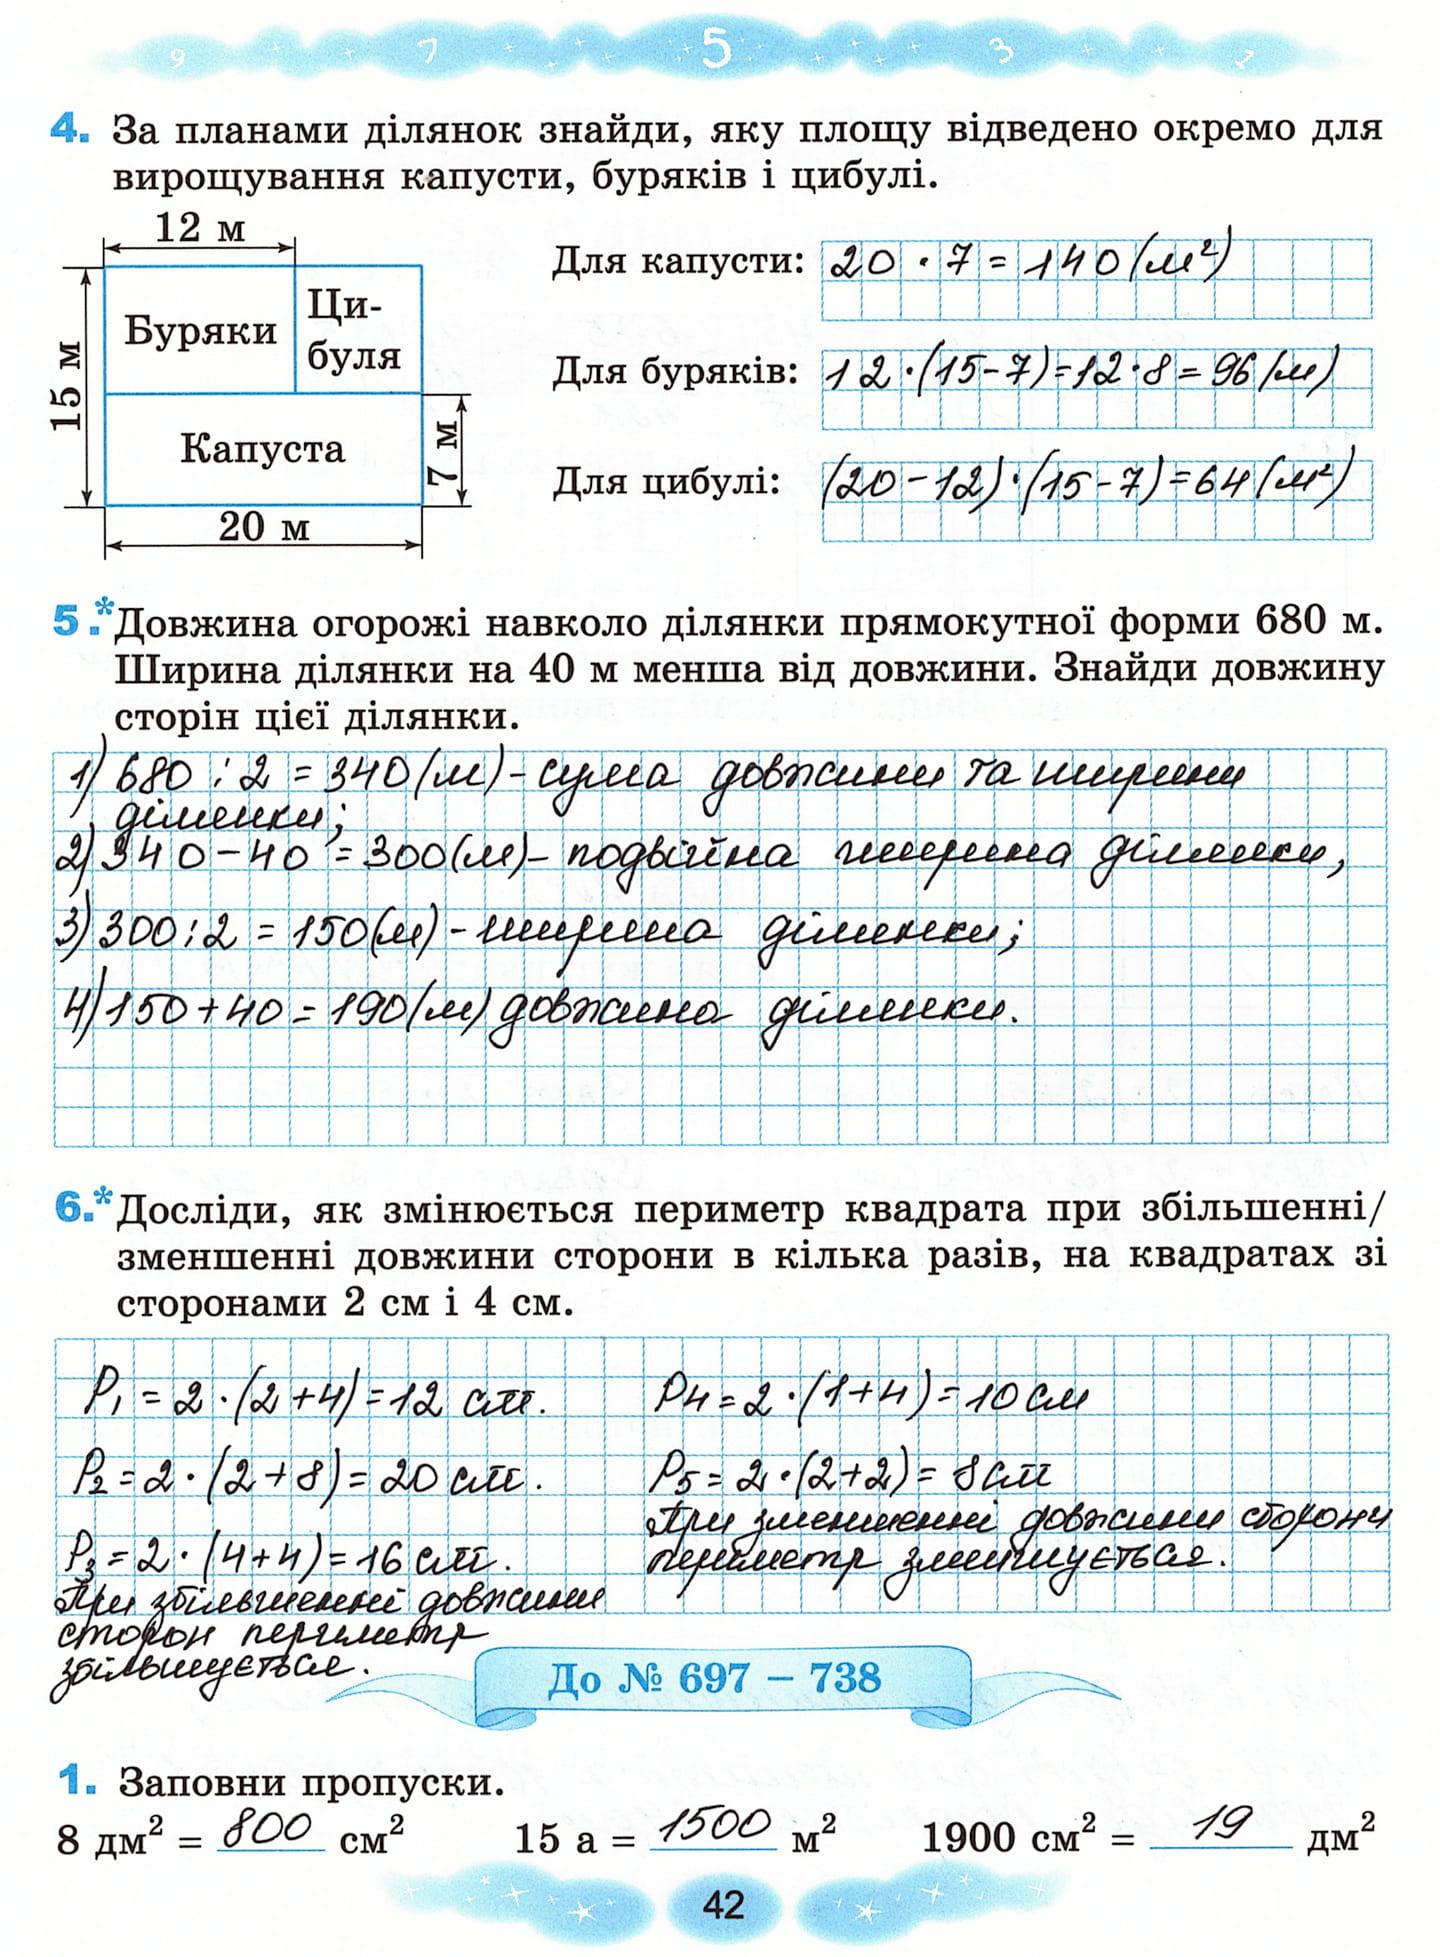 9 7 5 3 1
4. За планами ділянок знайди, яку площу відведено окремо для
вирощування капусти, буряків і цибулі.
12 м
15 м
Буряки
Ци-
буля
Капуста
7 м
20 м
Для капусти: 20 · 7 = 140 (м²)
Для буряків: 12 · (15-7) = 12 · 8 = 96 (м)
Для цибулі: (20 - 12) · (15 - 7) = 64 (м²)
5.* Довжина огорожі навколо ділянки прямокутної форми 680 м.
Ширина ділянки на 40 м менша від довжини. Знайди довжину
сторін цієї ділянки.
1) 680 : 2 = 340 (м) - сума довжини та ширини
ділянки;
2) 340 - 40 = 300 (м) - подвійна ширина ділянки,
3) 300 : 2 = 150 (м) - ширина ділянки;
4) 150 + 40 = 190 (м) довжина ділянки.
6.* Досліди, як змінюється периметр квадрата при збільшенні/
зменшенні довжини сторони в кілька разів, на квадратах зі
сторонами 2 см і 4 см.
P₁ = 2 · (2 + 4) = 12 см.
P₂ = 2 · (2 + 8) = 20 см.
P₃ = 2 · (4 + 4) = 16 см.
При збільшенні довжини
сторон периметр
збільшується.
P4 = 2 · (1 + 4) = 10 см
P₅ = 2 · (2 + 2) = 8 см
При зменшенні довжини сторони
периметр зменшується.
До № 697 – 738
1. Заповни пропуски.
8 дм² = 800 см² 15 а = 1500 м² 1900 см² = 19 дм²
42